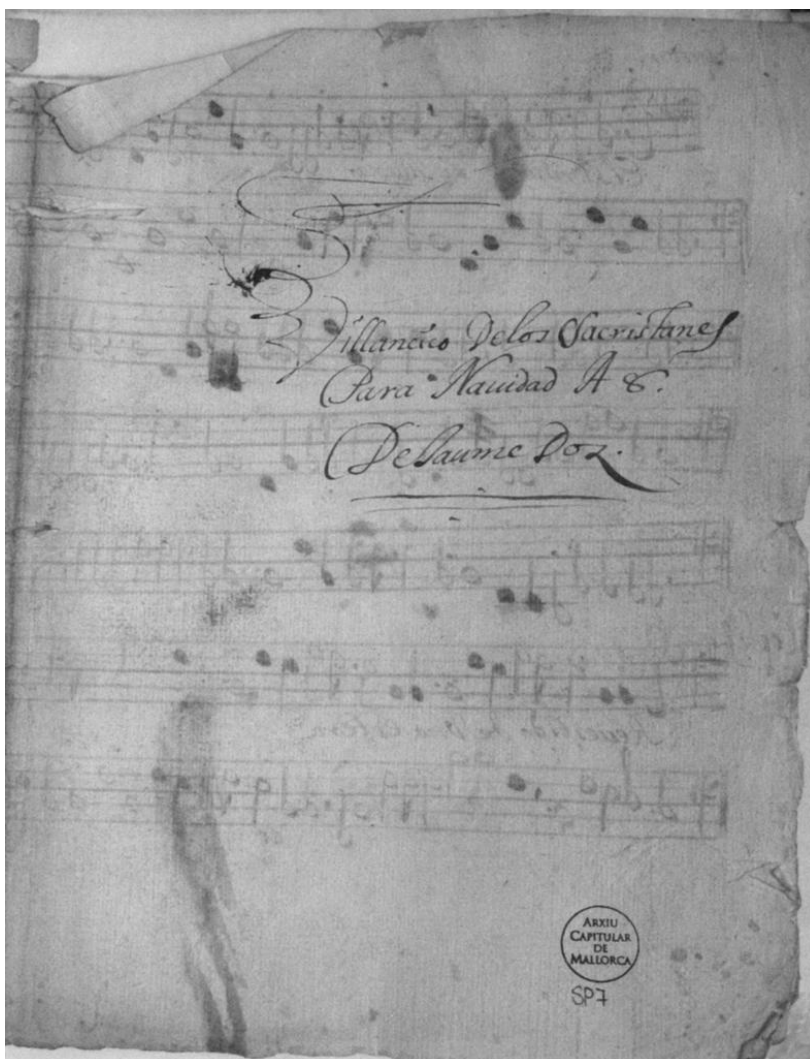 Villancico Delos Sacristanes
Para Navidad A 8.
De Jaume Doz.
ARXIU
CAPITULAR
DE
MALLORCA
SP7